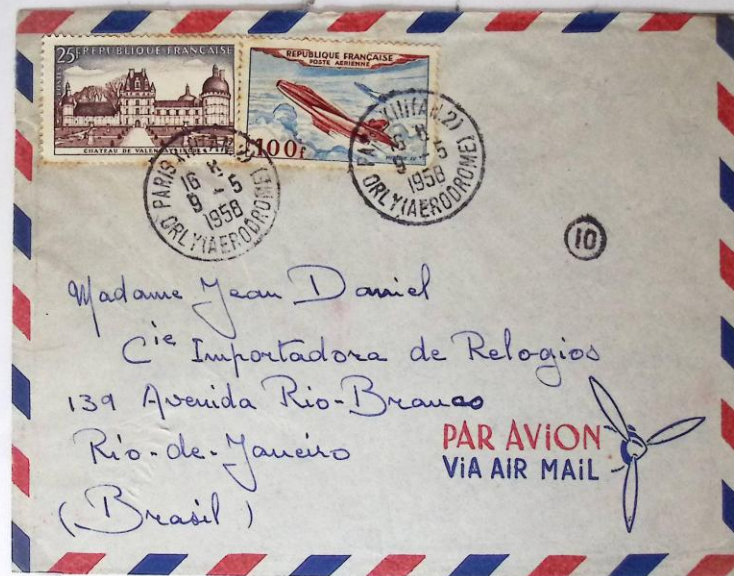 25F REPUBLIQUE FRANÇAISE
POSTES
CHATEAU DE VALENÇAY
REPUBLIQUE FRANÇAISE
POSTE AERIENNE
100f
PARIS XIII (AN.2)
16 H
9 - 5
1958
ORLY (AERODROME)
PARIS XIII (AN.2)
16 H
9 - 5
1958
ORLY (AERODROME)
10
Madame Jean Daniel
Cie Importadora de Relogios
139 Avenida Rio-Branco
Rio-de-Janeiro
(Brasil)
PAR AViON
ViA AIR MAiL